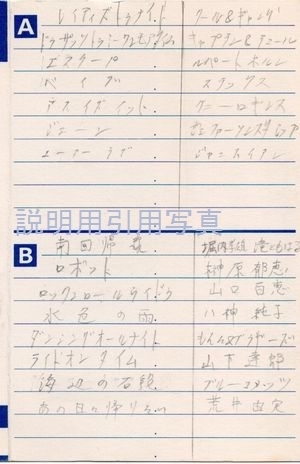 A
レイディズトゥナイト クール&ギャング
キャプテン&テニール
エスケープ ルパートホルム
ベイブ スティクス
ケニーロギンス
ジェーン
ユーアーラブ ジャニスイアン
説明用引用写真
B
南回帰線 堀内孝雄 滝ともはる
ロボット 榊原郁恵
ロックンロールウィドウ 山口百恵
水色の雨 八神純子
ダンシングオールナイト もんた&ブラザーズ
ライドオンタイム 山下達郎
海辺の石段 ブルーコメッツ
あの日に帰りたい 荒井由実